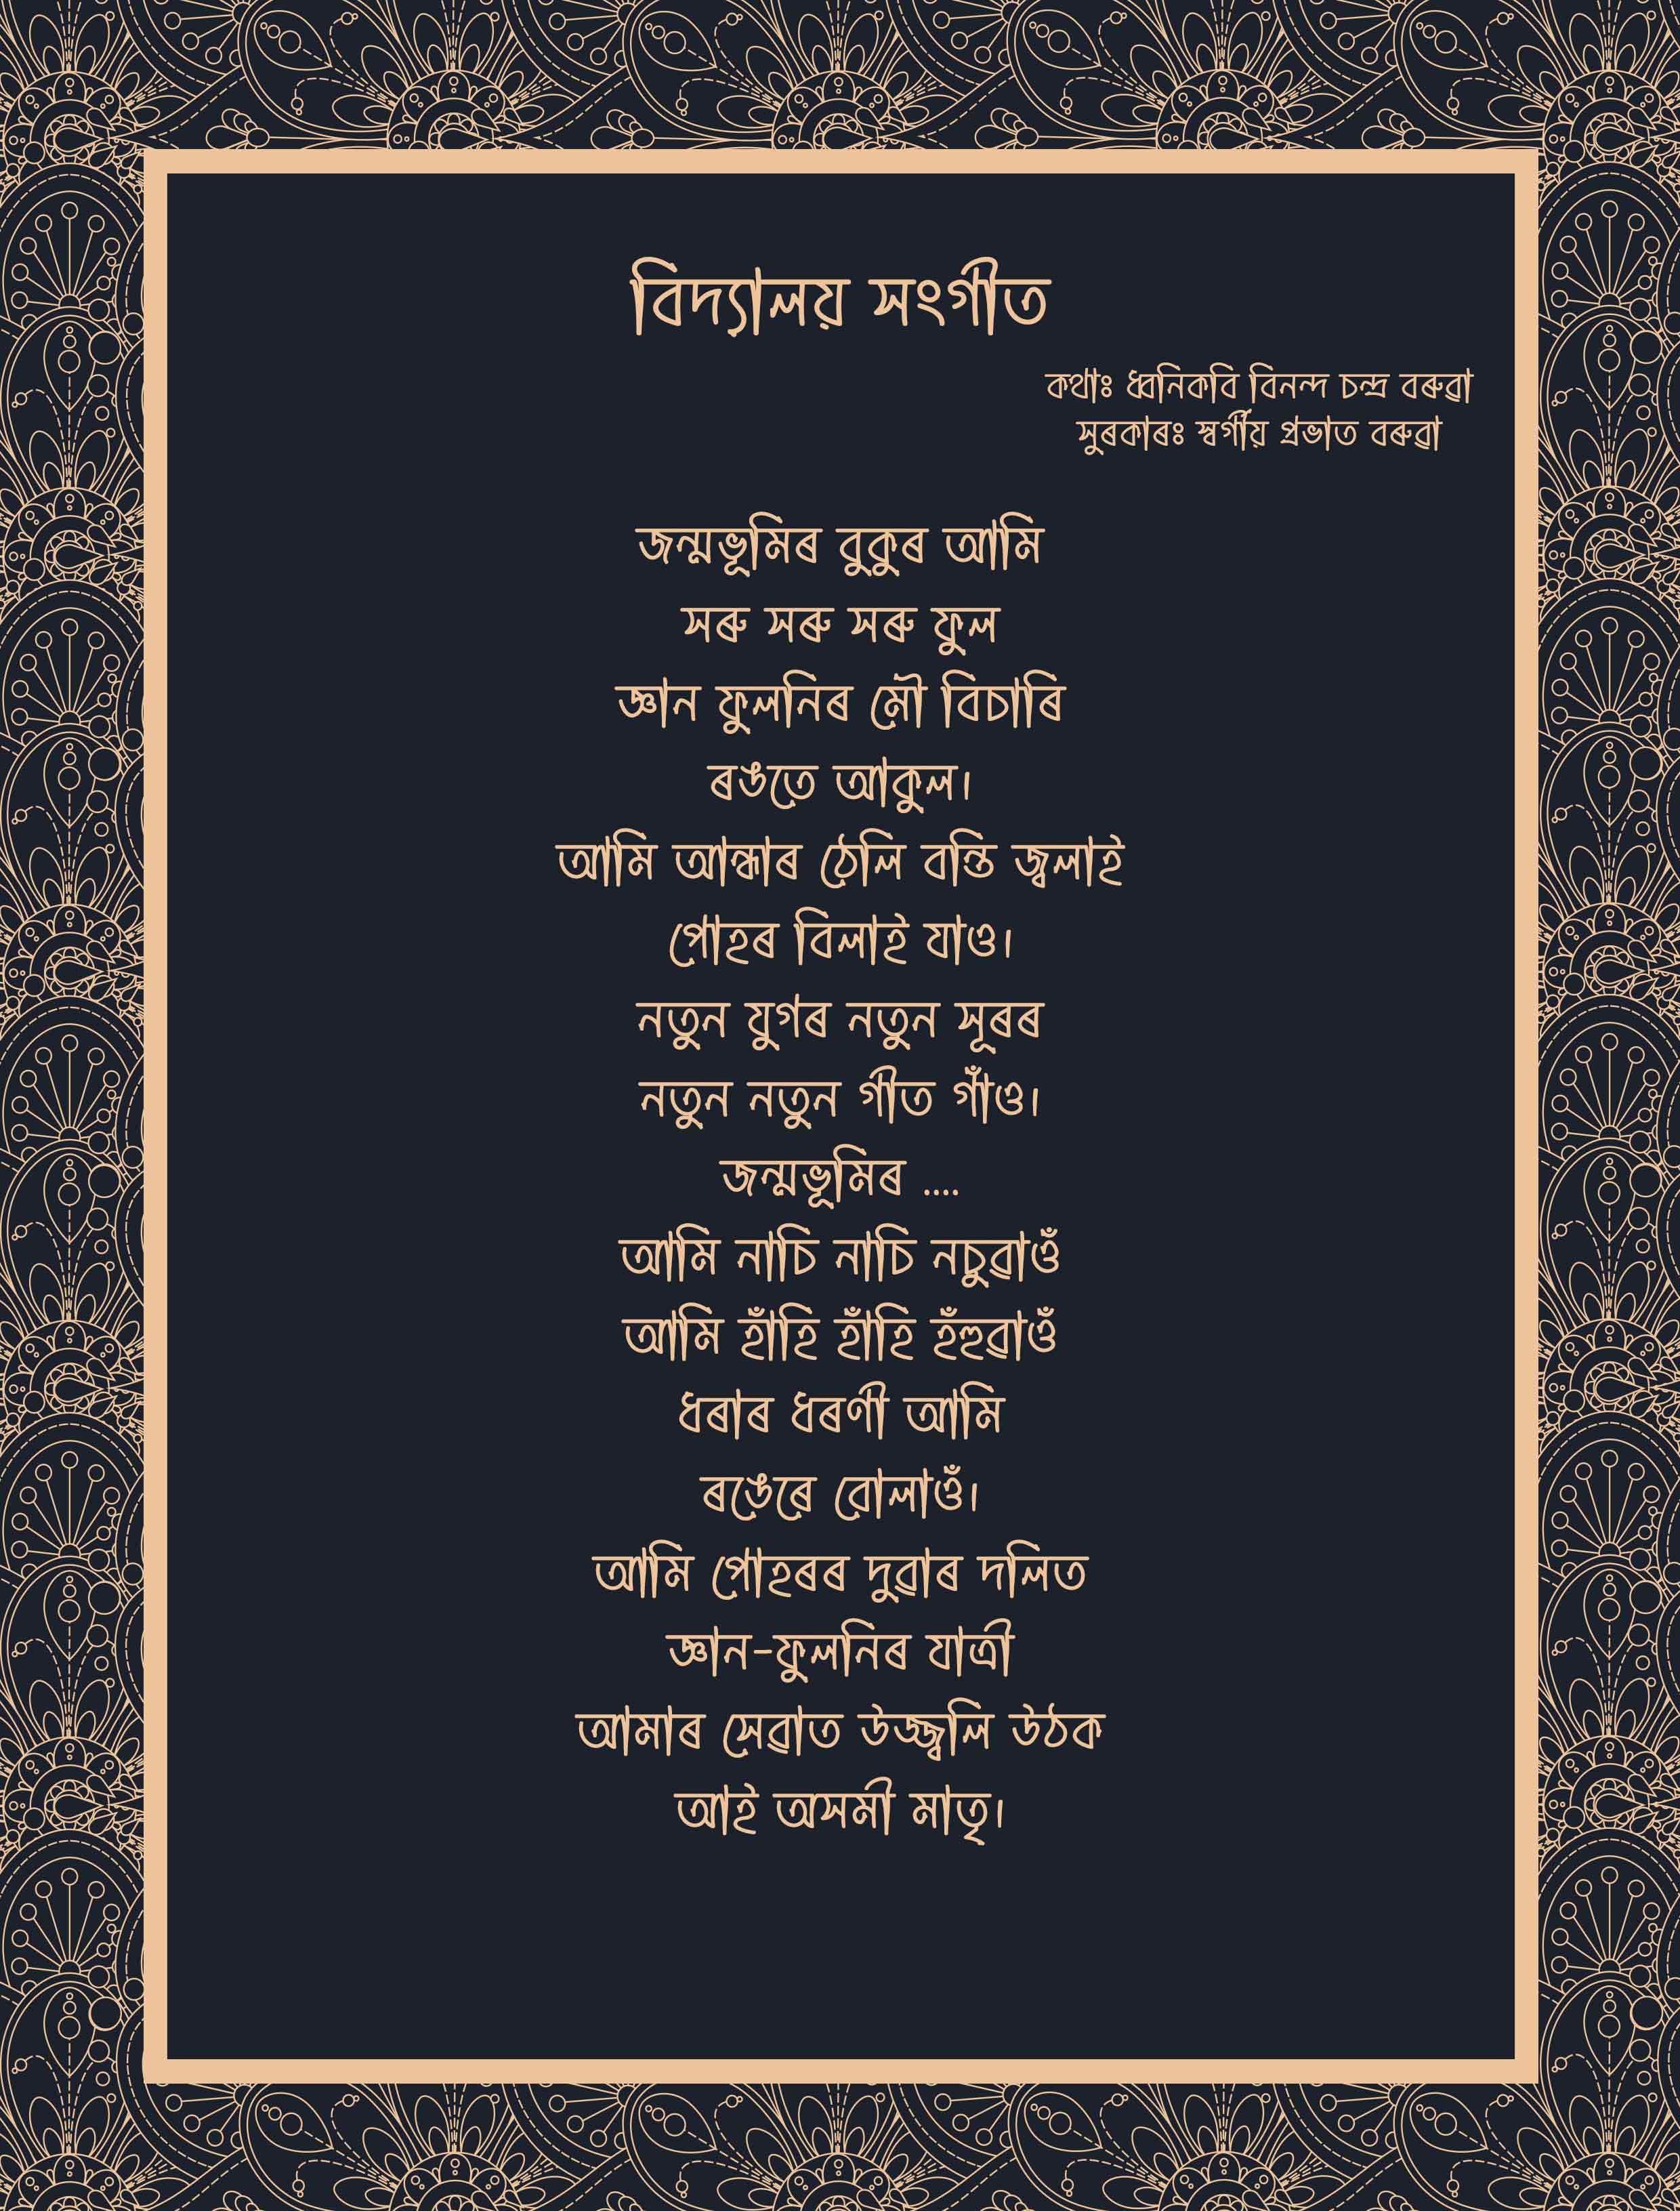 বিদ্যালয় সংগীত
কথাঃ ধ্বনিকবি বিনন্দ চন্দ্ৰ বৰুৱা
সুৰকাৰঃ স্বৰ্গীয় প্ৰভাত বৰুৱা
জন্মভূমিৰ বুকুৰ আমি
সৰু সৰু সৰু ফুল
জ্ঞান ফুলনিৰ মৌ বিচাৰি
ৰঙতে আকুল।
আমি আন্ধাৰ ঠেলি বন্তি জ্বলাই
পোহৰ বিলাই যাওঁ।
নতুন যুগৰ নতুন সূৰৰ
নতুন নতুন গীত গাঁও।
জন্মভূমিৰ ....
আমি নাচি নাচি নচুৱাওঁ
আমি হাঁহি হাঁহি হঁহুৱাওঁ
ধৰাৰ ধৰণী আমি
ৰঙেৰে বোলাওঁ।
আমি পোহৰৰ দুৱাৰ দলিত
জ্ঞান-ফুলনিৰ যাত্ৰী
আমাৰ সেৱাত উজ্জ্বলি উঠক
আই অসমী মাতৃ।